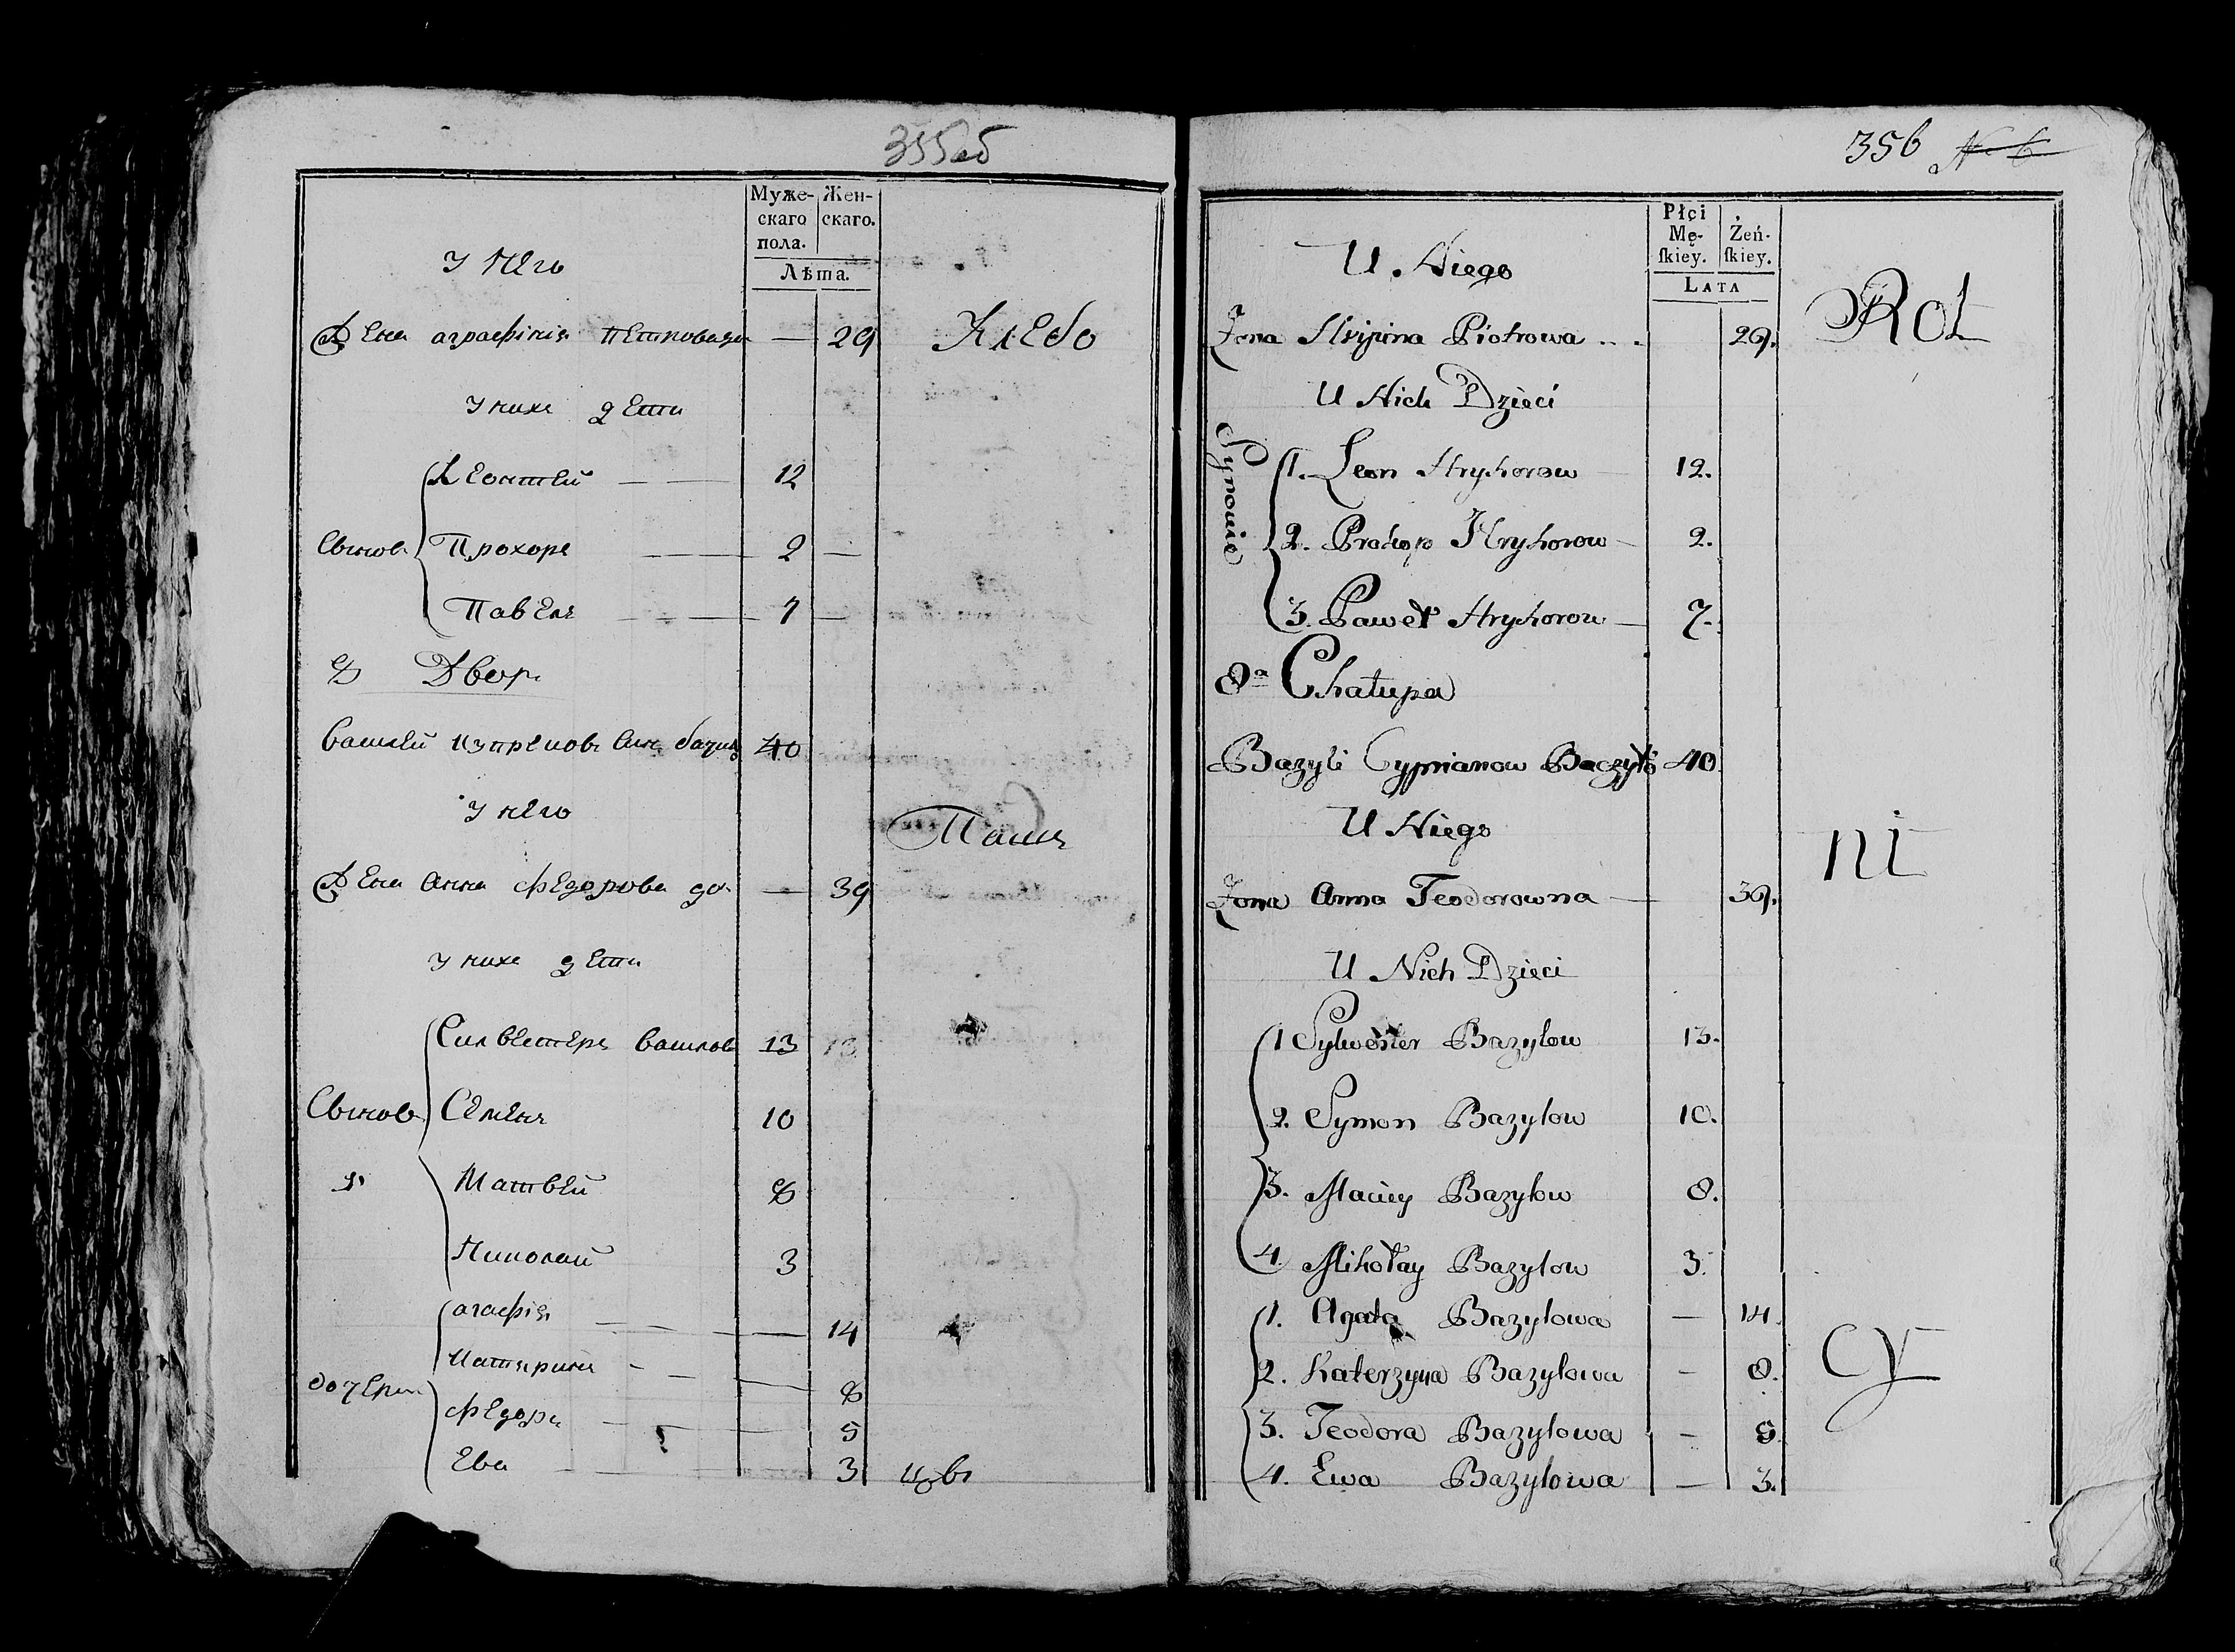 355об
Муже-
скаго
пола.
Жен-
скаго.
Лѣта.
у него
Жена 29 Хлебо
у нихъ дети
Леонтей 12
Сынов Прохоръ 2
Павелъ 7
8 Двор
40
у него
Паше
Жена Анна Федорова до 39
у нихъ дети
Силвестеръ 13
Сынов Семенъ 10
Матвей 8
Николай 3
агафія 14
Катерина 8
дочери Федора 5
Ева 3 цвъ
356 N. 6
Płci
Mę-
ſkiey.
Żeń-
ſkiey.
LATA
U Niego
Rol
Żona Piotrowa 29.
U Nich Dzieci
Synowie
1. Leon Hryhorow 12.
2. Prokop Hryhorow 2.
3. Paweł Hryhorow 7.
8a Chałupa
Bazyli Cypryanow Baczyło 40
U Niego
ni
Żona Anna Teodorowna 39.
U Nich Dzieci
1 Sylwester Bazylow 13.
2. Symon Bazylow 10.
3. Maciey Bazylow 8.
4. Mikołay Bazylow 3.
1. Agata Bazylowa — 14.
cy
2. Katerzyna Bazylowa — 8.
3. Teodora Bazylowa — 5.
4. Ewa Bazylowa — 3.